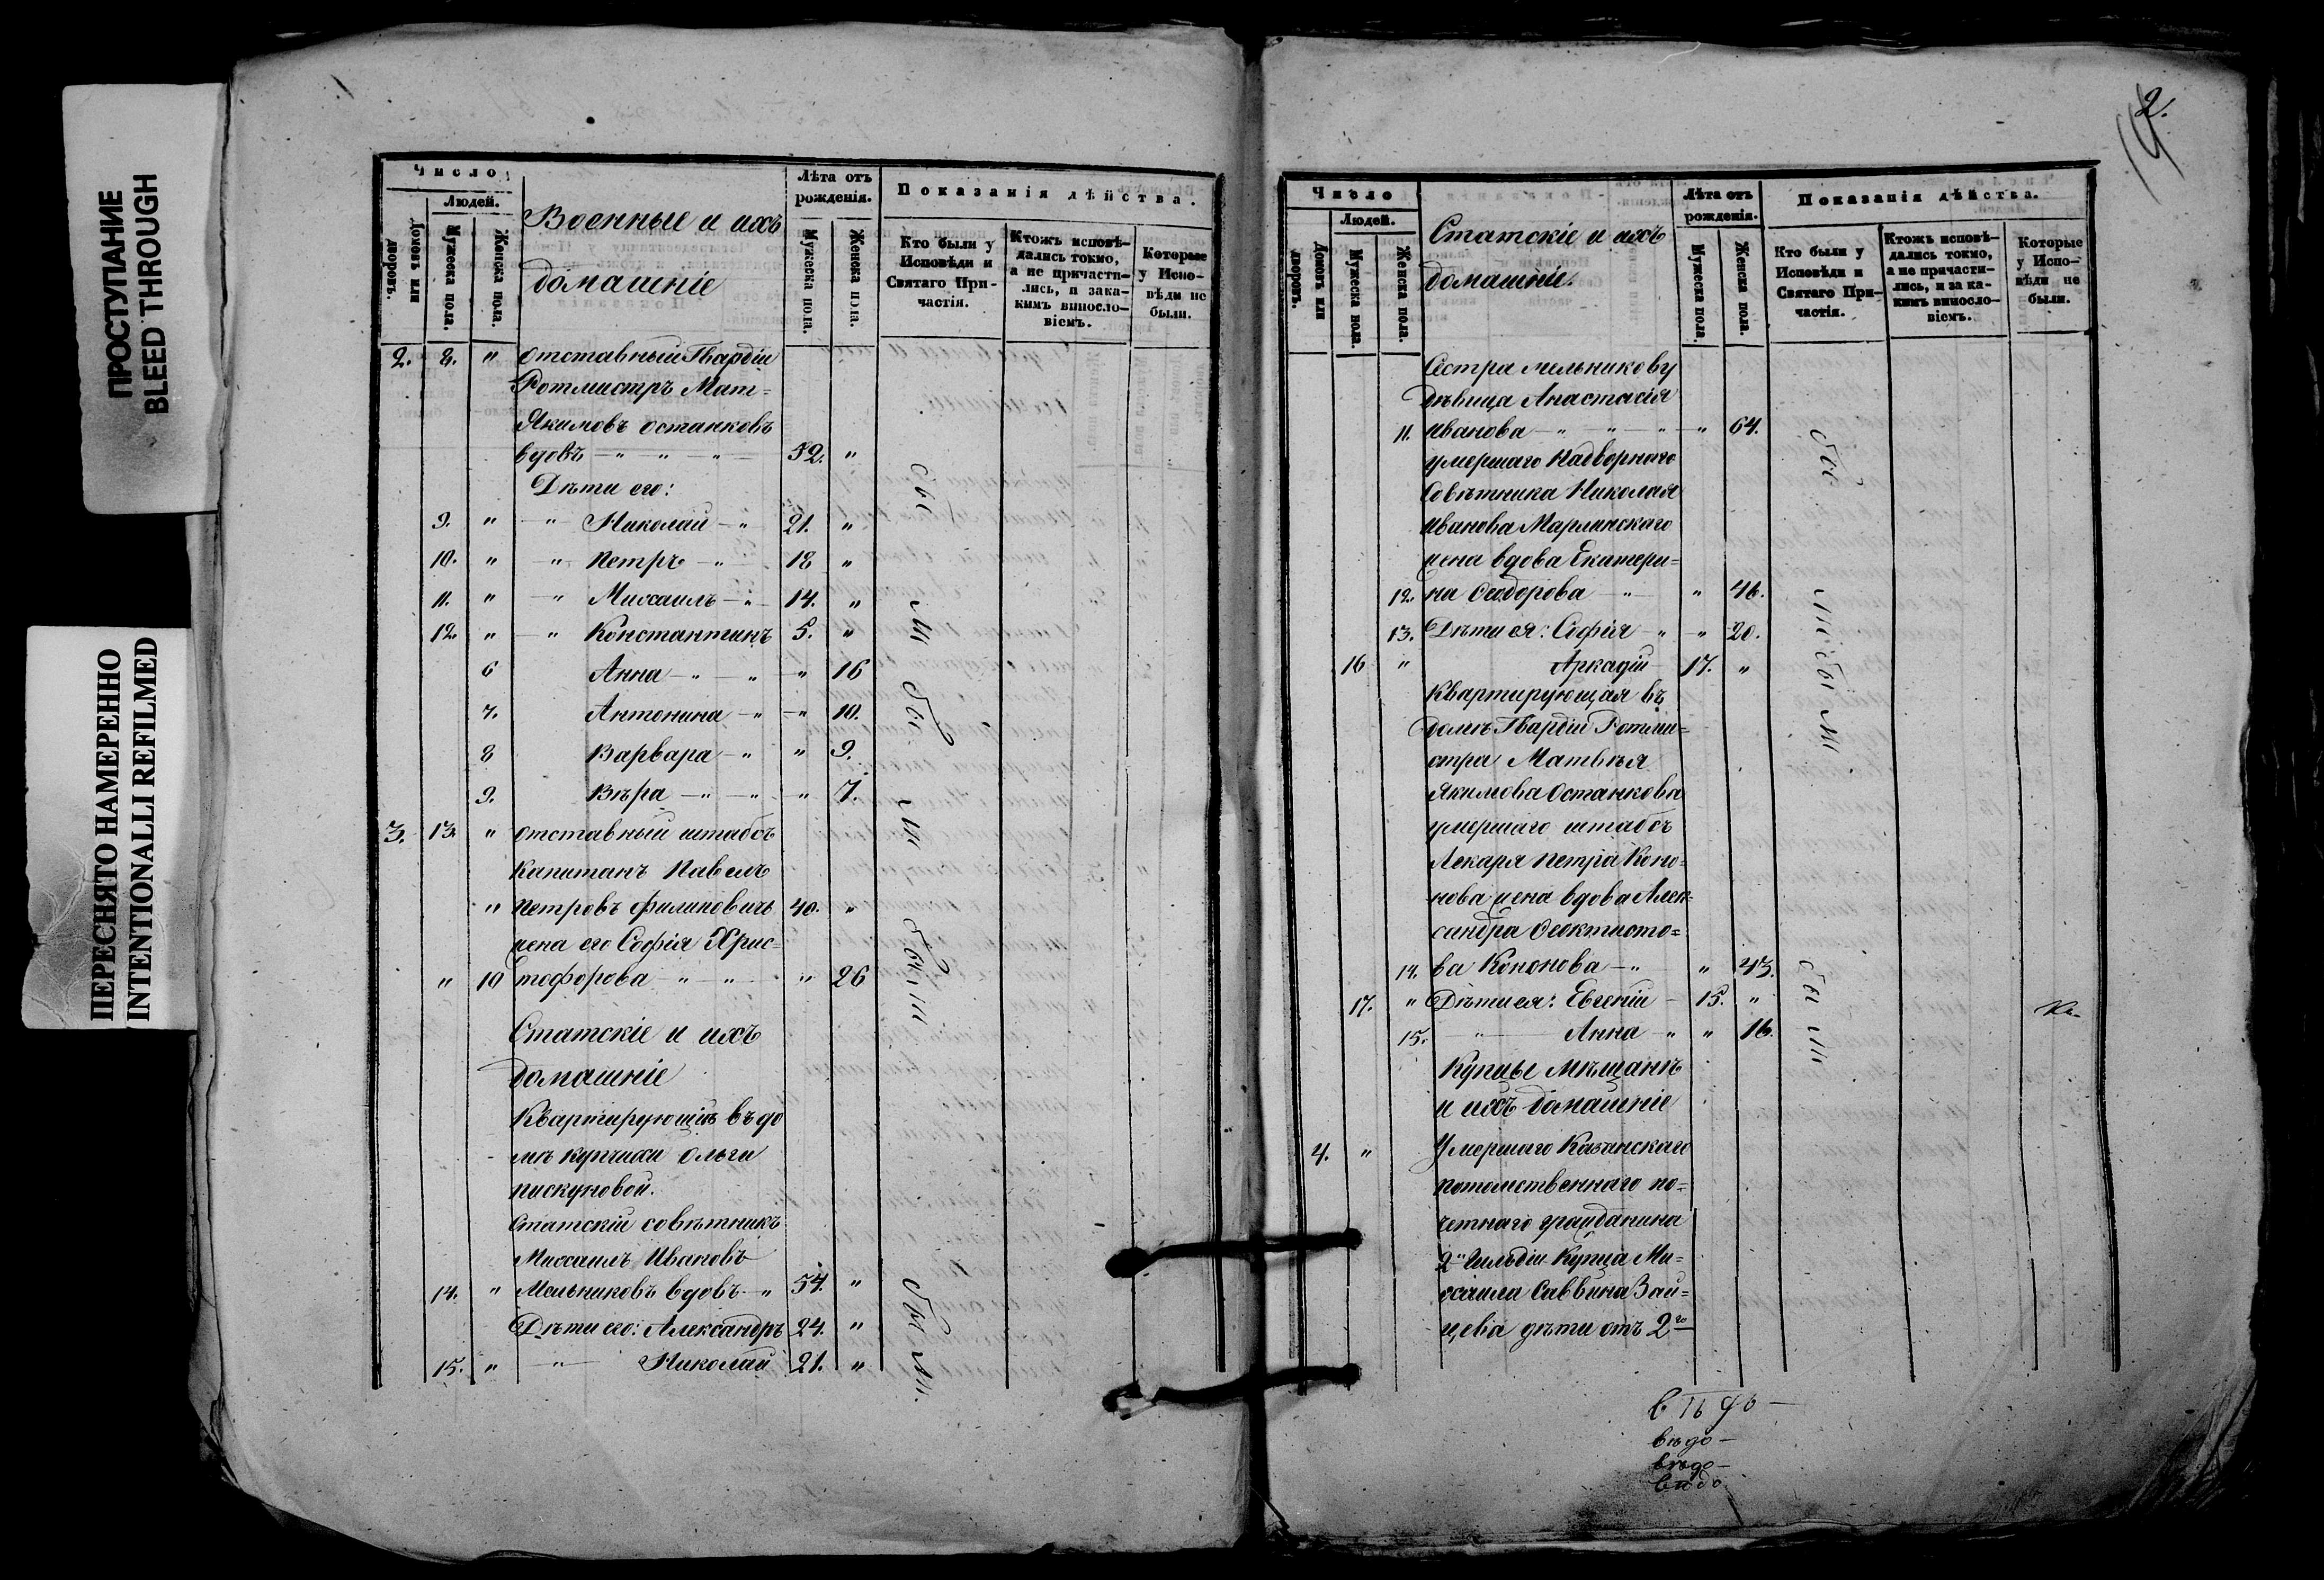 ПРОСТУПАНИЕ
BLEED THROUGH
ПЕРЕСНЯТО НАМЕРЕННО
INTENTIONALLI REFILMED
Число
Людей.
Домовъ или дворовъ.
Мужеска пола.
Женска пола.
Военные и ихъ
домашніе
Лѣта отъ рожденія.
Мужеска пола.
Женска пола.
Показанія дѣйства.
Кто были у Исповѣди и Святаго При-частія.
Ктожъ исповѣ-дались токмо, а не причасти-лись, и зака-кимъ винослo-віемъ.
Которые у Испо-вѣди не были.
2. 8. " отставный Гвардіи
Ротмистръ Мат-
Якимовъ Останковъ
вдовъ — " — " — " — 52. "
Дѣти его:
9. " — " Николай — " 21. "
10. " — " Петръ — " 18 "
11. " — " Михаилъ — " — 14. "
12. " — " Константинъ 5. "
6 Анна — " — " — " 16
7. Антонина — " — " 10.
8 Варвара — " " 9.
9. Вѣра — " — " — " 7.
3. 13. " отставный штабсъ
Капитанъ Павелъ
" Петровъ Филиповичъ 40. "
жена его Софія Хрис-
" 10 тофорова — " — " — " 26
были
были
Статскіе и ихъ
домашніе
Квартирующіе въ до
мѣ купчихи Ольги
Пискуновой.
Статскій совѣтникъ
Михаилъ Ивановъ
14. " Мельниковъ вдовъ — " 54. "
Дѣти его: Александръ 24. "
15. " — " — Николай 21. "
были.
2.
Число
Людей.
Домовъ или дворовъ.
Мужеска пола.
Женска пола.
Статскіе и ихъ
домашніе.
Лѣта отъ рожденія.
Мужеска пола.
Женска пола.
Показанія дѣйства.
Кто были у Исповѣди и Святаго При-частія.
Ктожъ исповѣ-дались токмо, а не причасти-лись, и за ка-кимъ винослo-віемъ.
Которые у Испо-вѣди не были.
Сестра Мельникову
дѣвица Анастасія
11. Иванова — " — " — " — " 64.
умершаго Надворнаго
Совѣтника Николая
Иванова Марлинскаго
жена вдова Екатери-
12. на Ѳеодорова — " — " 46.
13. Дѣти ея: Софія — " — " 20.
16 " Аркадій 17. "
Квартирующая въ
домѣ Гвардіи Ротми-
стра Матвѣя
Якимова Останкова
умершаго штабсъ
Лекаря Петра Коно-
нова жена вдова Алек-
сандра Ѳеоктисто-
14. ва Кононова — " " 43.
17. " Дѣти ея: Евгеній — 15. "
15. — " — Анна — " " 16.
были
Купцы Мѣщанѣ
и ихъ домашніе
4. " Умершаго Казанскаго
потомственнаго по-
четнаго гражданина
2й Гильдіи Купца Ми-
хаила Саввина Зай-
цева дѣти отъ 2го
вѣдо —
вѣдо —